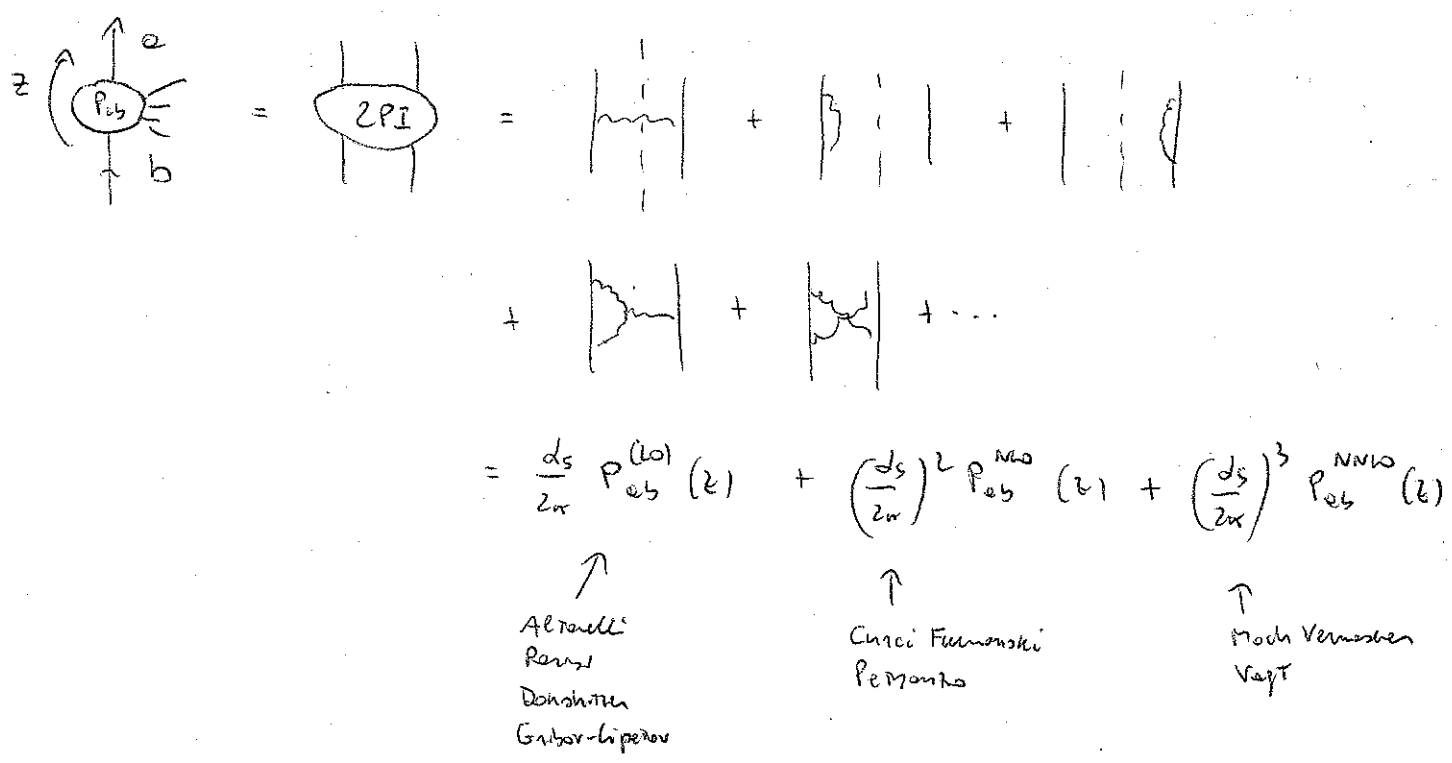 z P_{ab} a b = 2PI = + +
+ + + ...
= \frac{α_s}{2π} P_{ab}^{(LO)} (z) + \left(\frac{α_s}{2π}\right)^2 P_{ab}^{NLO} (z) + \left(\frac{α_s}{2π}\right)^3 P_{ab}^{NNLO} (z)
Altarelli
Parisi
Dokshitzer
Gribov-Lipatov
Curci Furmanski
Petronzio
Moch Vermaseren
Vogt